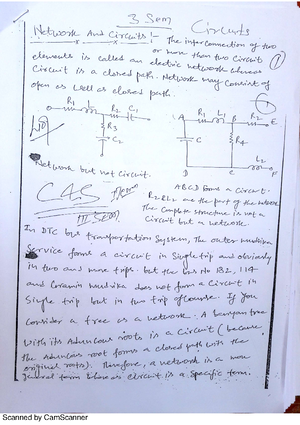 3 Sem
Circuits
Network And Circuits :- The interconnection of two
or more than two circuit
elements is called an electric network whereas
Circuit is a closed path. Network may consist of
open as well as closed path.
1
R1 L R2 C1
R3
C2
A R1 L1 B R2 E
C R4
D C L2 F
Network but not circuit.
ABCD form a circuit.
R2 & L2 are the part of the network
The complete structure is not a
circuit but a network.
(III Sem)
In DTC bus transportation System, The outer mudrika
Service forms a circuit in Single trip and obviously
in two and more trips. but the bus No 182, 114
and Gramin mudrika does not form a Circuit in
Single trip but in two trip of course. If you
consider a tree as a network. A banyan tree
with its Adventious roots is a Circuit (because
the Adventious root forms a closed path with the
original roots). Therefore, a network is a more
general form whereas circuit is a specific term.
Scanned by CamScanner